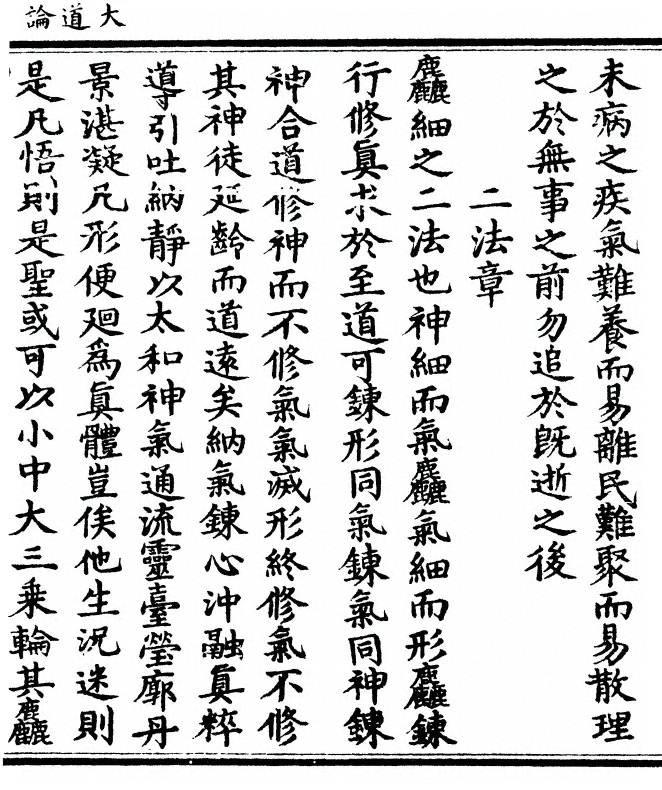 大道論
未病之疾氣難養而易離民難聚而易散理
之於無事之前勿追於旣逝之後
二法章
麤細之二法也神細而氣麤氣細而形麤鍊
行修眞求於至道可鍊形同氣鍊氣同神鍊
神合道修神而不修氣氣滅形終修氣不修
其神徒延齡而道遠矣納氣鍊心沖融眞粹
導引吐納靜以太和神氣通流靈臺瑩廓丹
景湛凝凡形便廻爲眞體豈俟他生況迷則
是凡悟則是聖或可以小中大三乗輪其麤